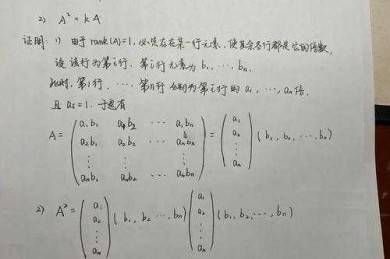 2) A² = kA
证明: 1) 由于 rank(A)=1, 必然存在某一行元素, 使其余各行都是它的倍数,
设该行为第i行, 第i行元素为 b₁, …, bₙ.
此时, 第1行, …, 第n行分别为第i行的 a₁, …, aₙ倍,
且 aᵢ=1. 于是有
A = ( a₁b₁ a₁b₂ … a₁bₙ ; a₂b₁ a₂b₂ … a₂bₙ ; ⋮ ⋮ ⋮ ; aₙb₁ aₙb₂ … aₙbₙ ) = ( a₁ ; a₂ ; ⋮ ; aₙ ) (b₁, b₂, …, bₙ)
2) A² = ( a₁ ; a₂ ; ⋮ ; aₙ ) (b₁, b₂ …, bₙ) ( a₁ ; a₂ ; ⋮ ; aₙ ) (b₁, b₂, …, bₙ)